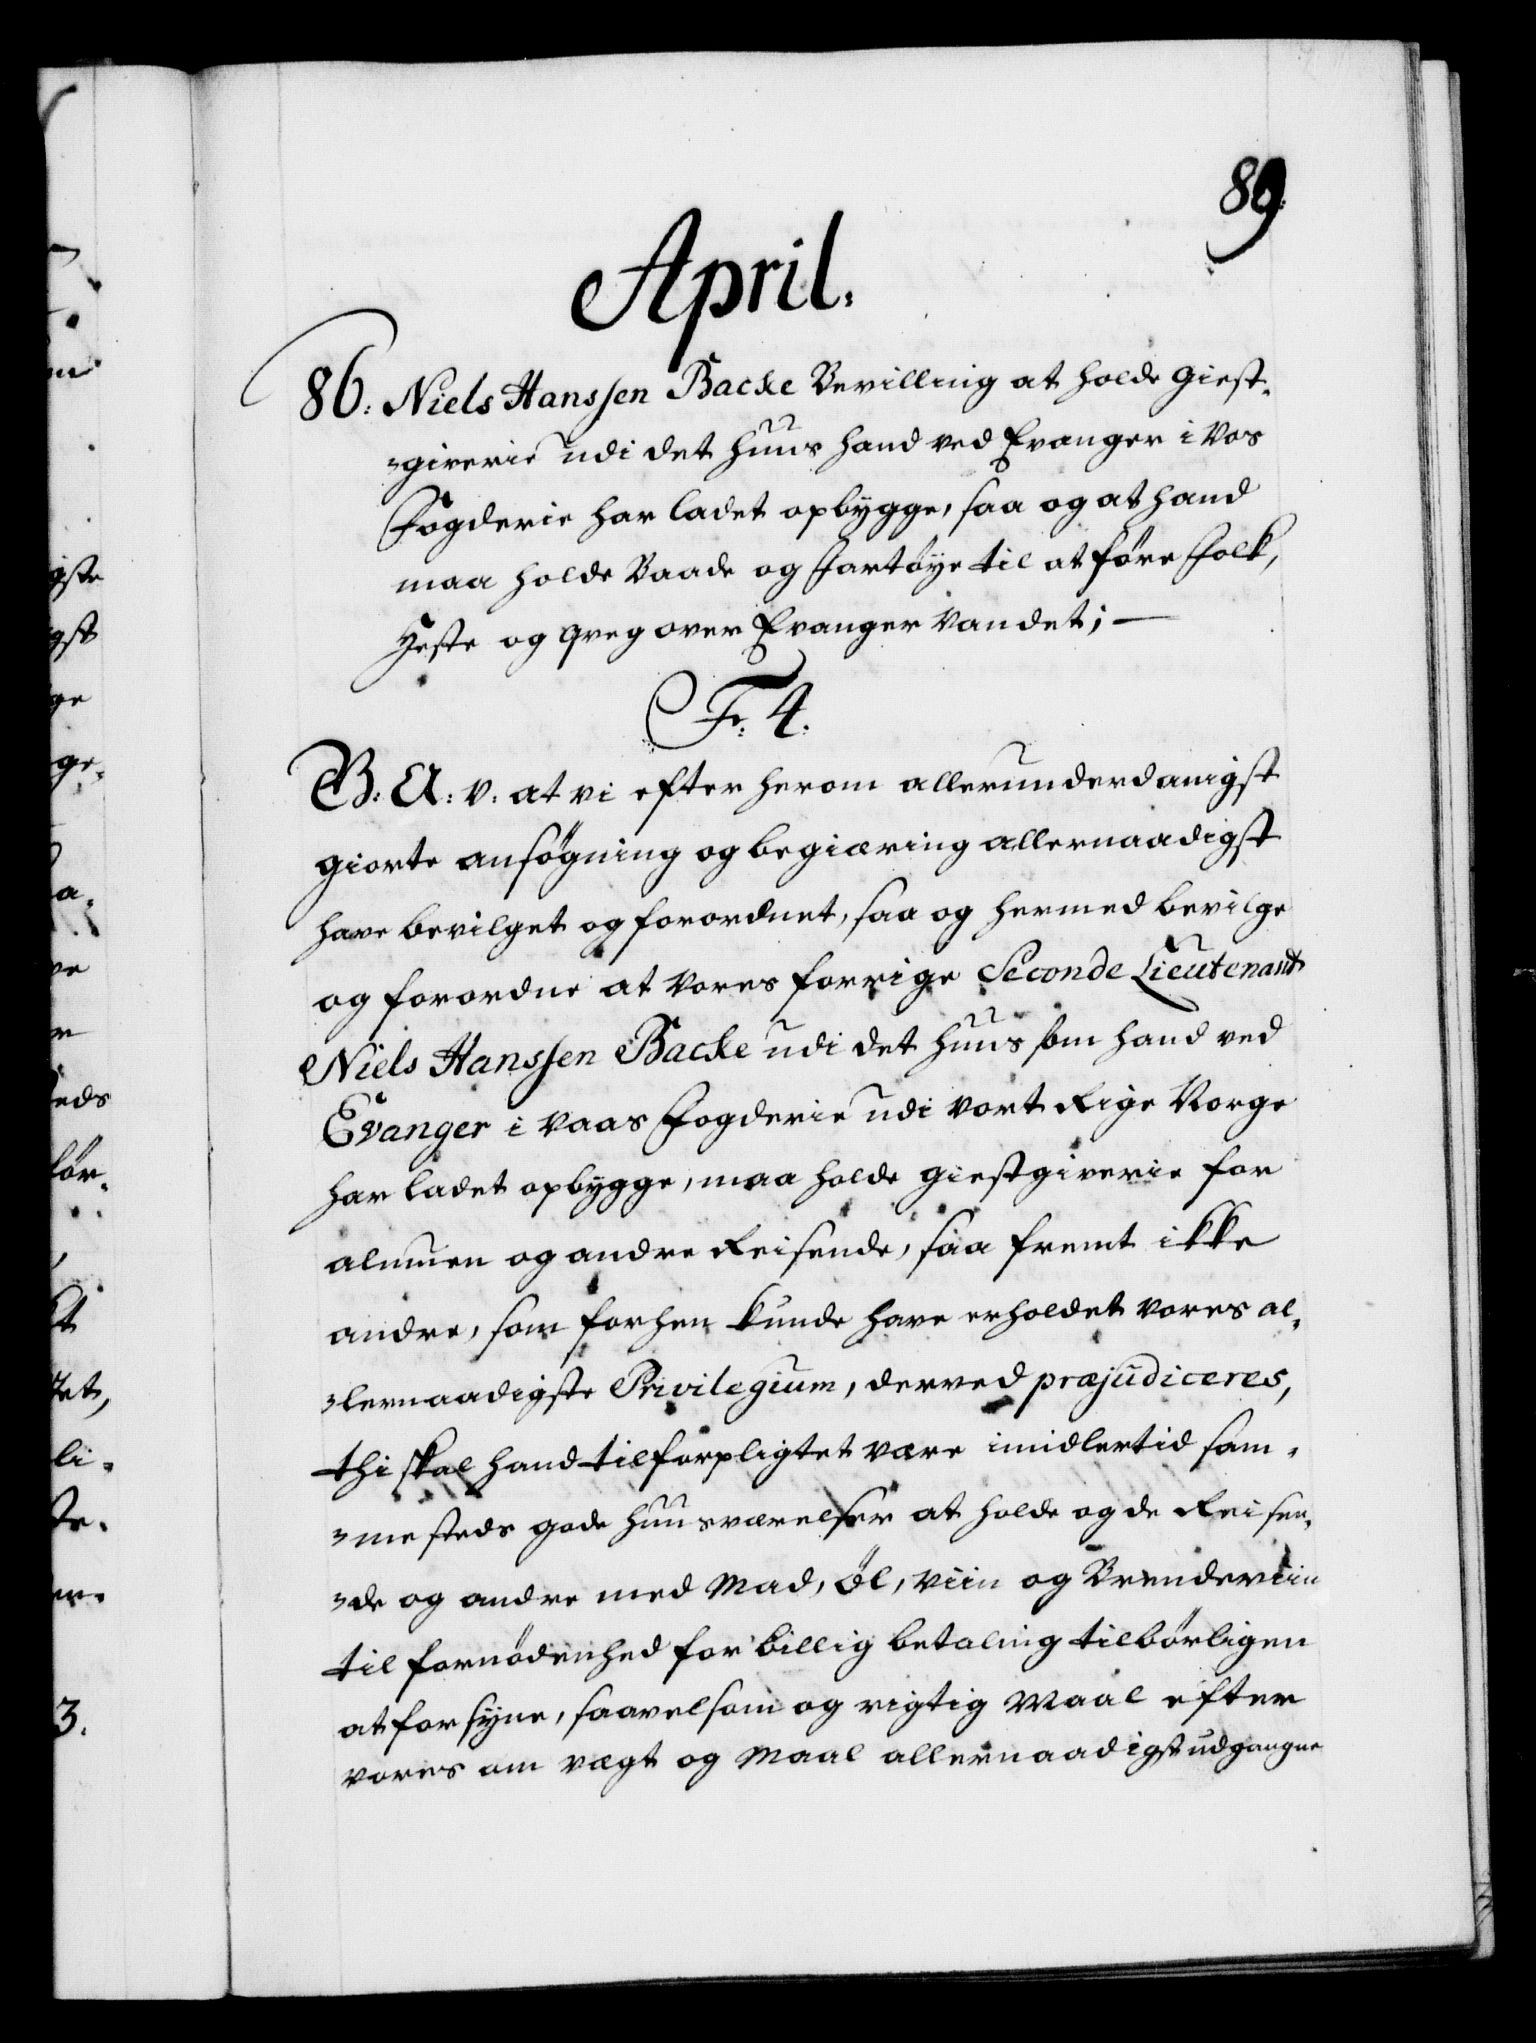 89.
April.
86: Niels Hanssen Backe Bevilling at holde giest-
-giverie udi det huus hand ved Evanger i Vos
Fogderie har ladet opbygge, saa og at hand
maa holde Baade og Fartöÿe til at före Folk,
Heste og qveg over Evanger Vandet; —
Fr. 4.
B: A: V: at vi efter herom allerunderdanigst
giorte ansögning og begiæring allernaadigst
have bevilget og forordnet, saa og hermed bevilge
og forordne at Vores forrige Seconde Lieutenant
Niels Hanssen Backe udi det huus som hand ved
Evanger i Vaas Fogderie udi Vort Rige Norge
har ladet opbygge, maa holde giestgiverie for
almuen og andre Reisende, saa fremt ikke
andre, som forhen kunde have erholdet Vores al-
-lernaadigste Privilegium, derved præjudiceres,
thi skal hand tilforpligtet være imidlertid sam-
-mesteds gode huusværelser at holde og de Reisen-
-de og andre med Mad, Öl, Viin og Brendeviin
til fornödenhed for billig betaling tilbörligen
at forsyne, saavelsom og rigtig Maal efter
vores om vægt og Maal allernaadigst udgangne